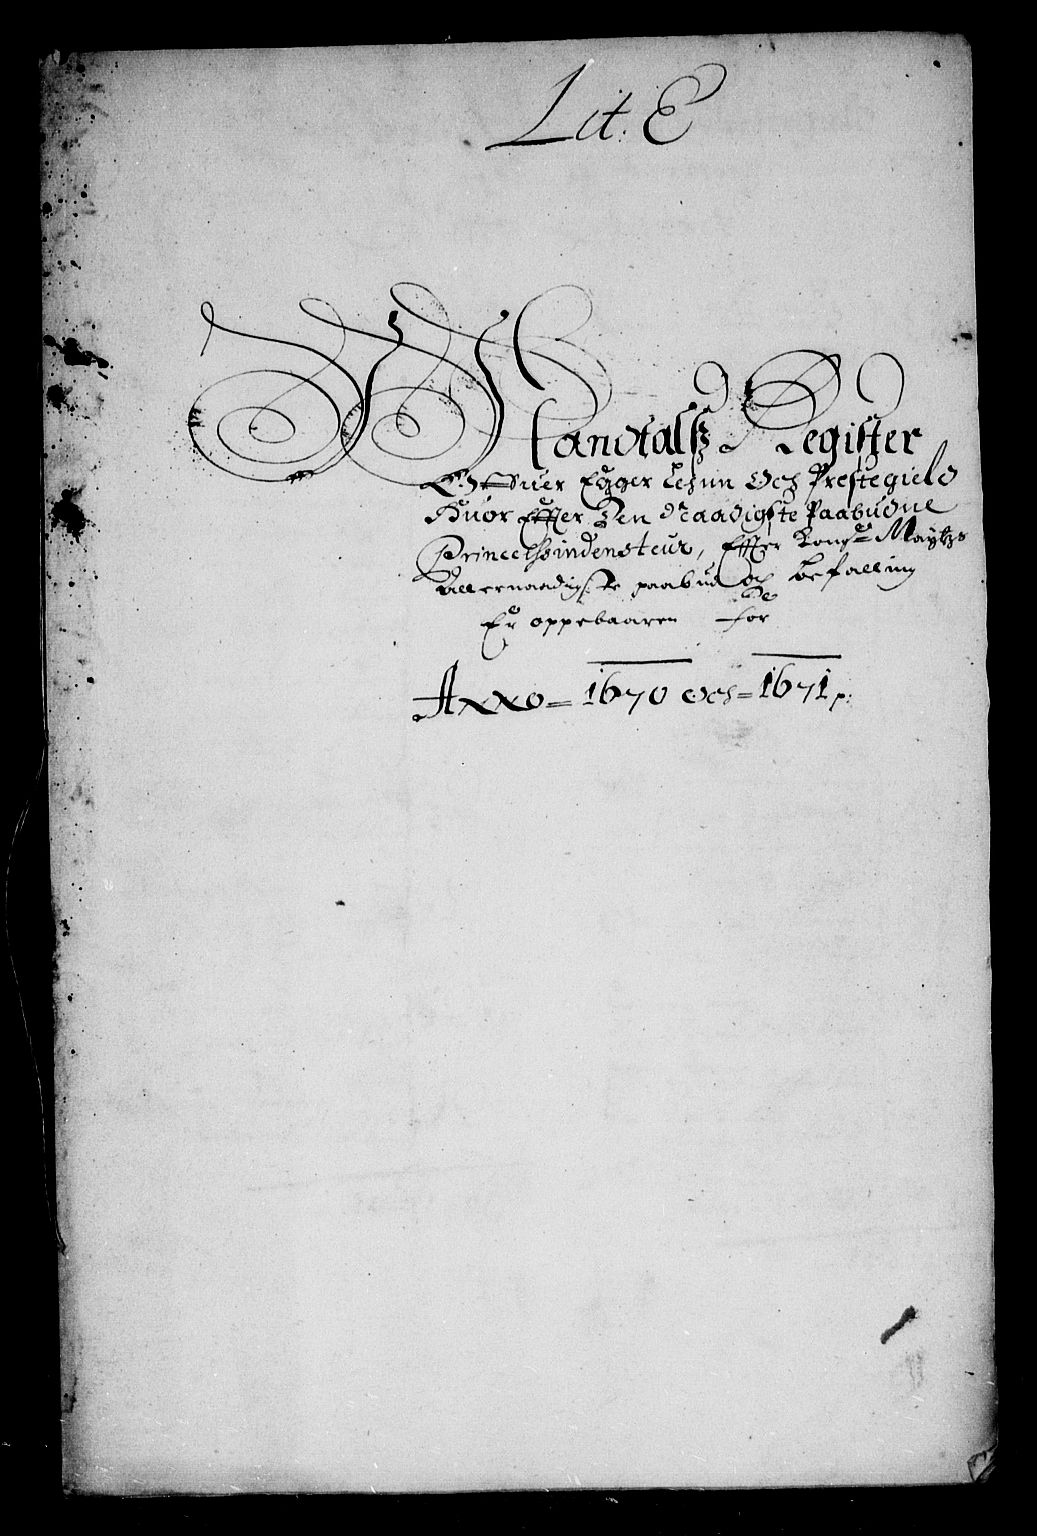 Lit: E
Mandtalsz Register
Offuer Egger Lehnn Och Prestegield
Huor Effter Den Naadigste Paabudne
Princesseindensteur, Effter Kong: Maÿtz
Allernaadigste paabud Och Befalling
Er oppebaaren for
Anno = 1670 Och = 1671 p: